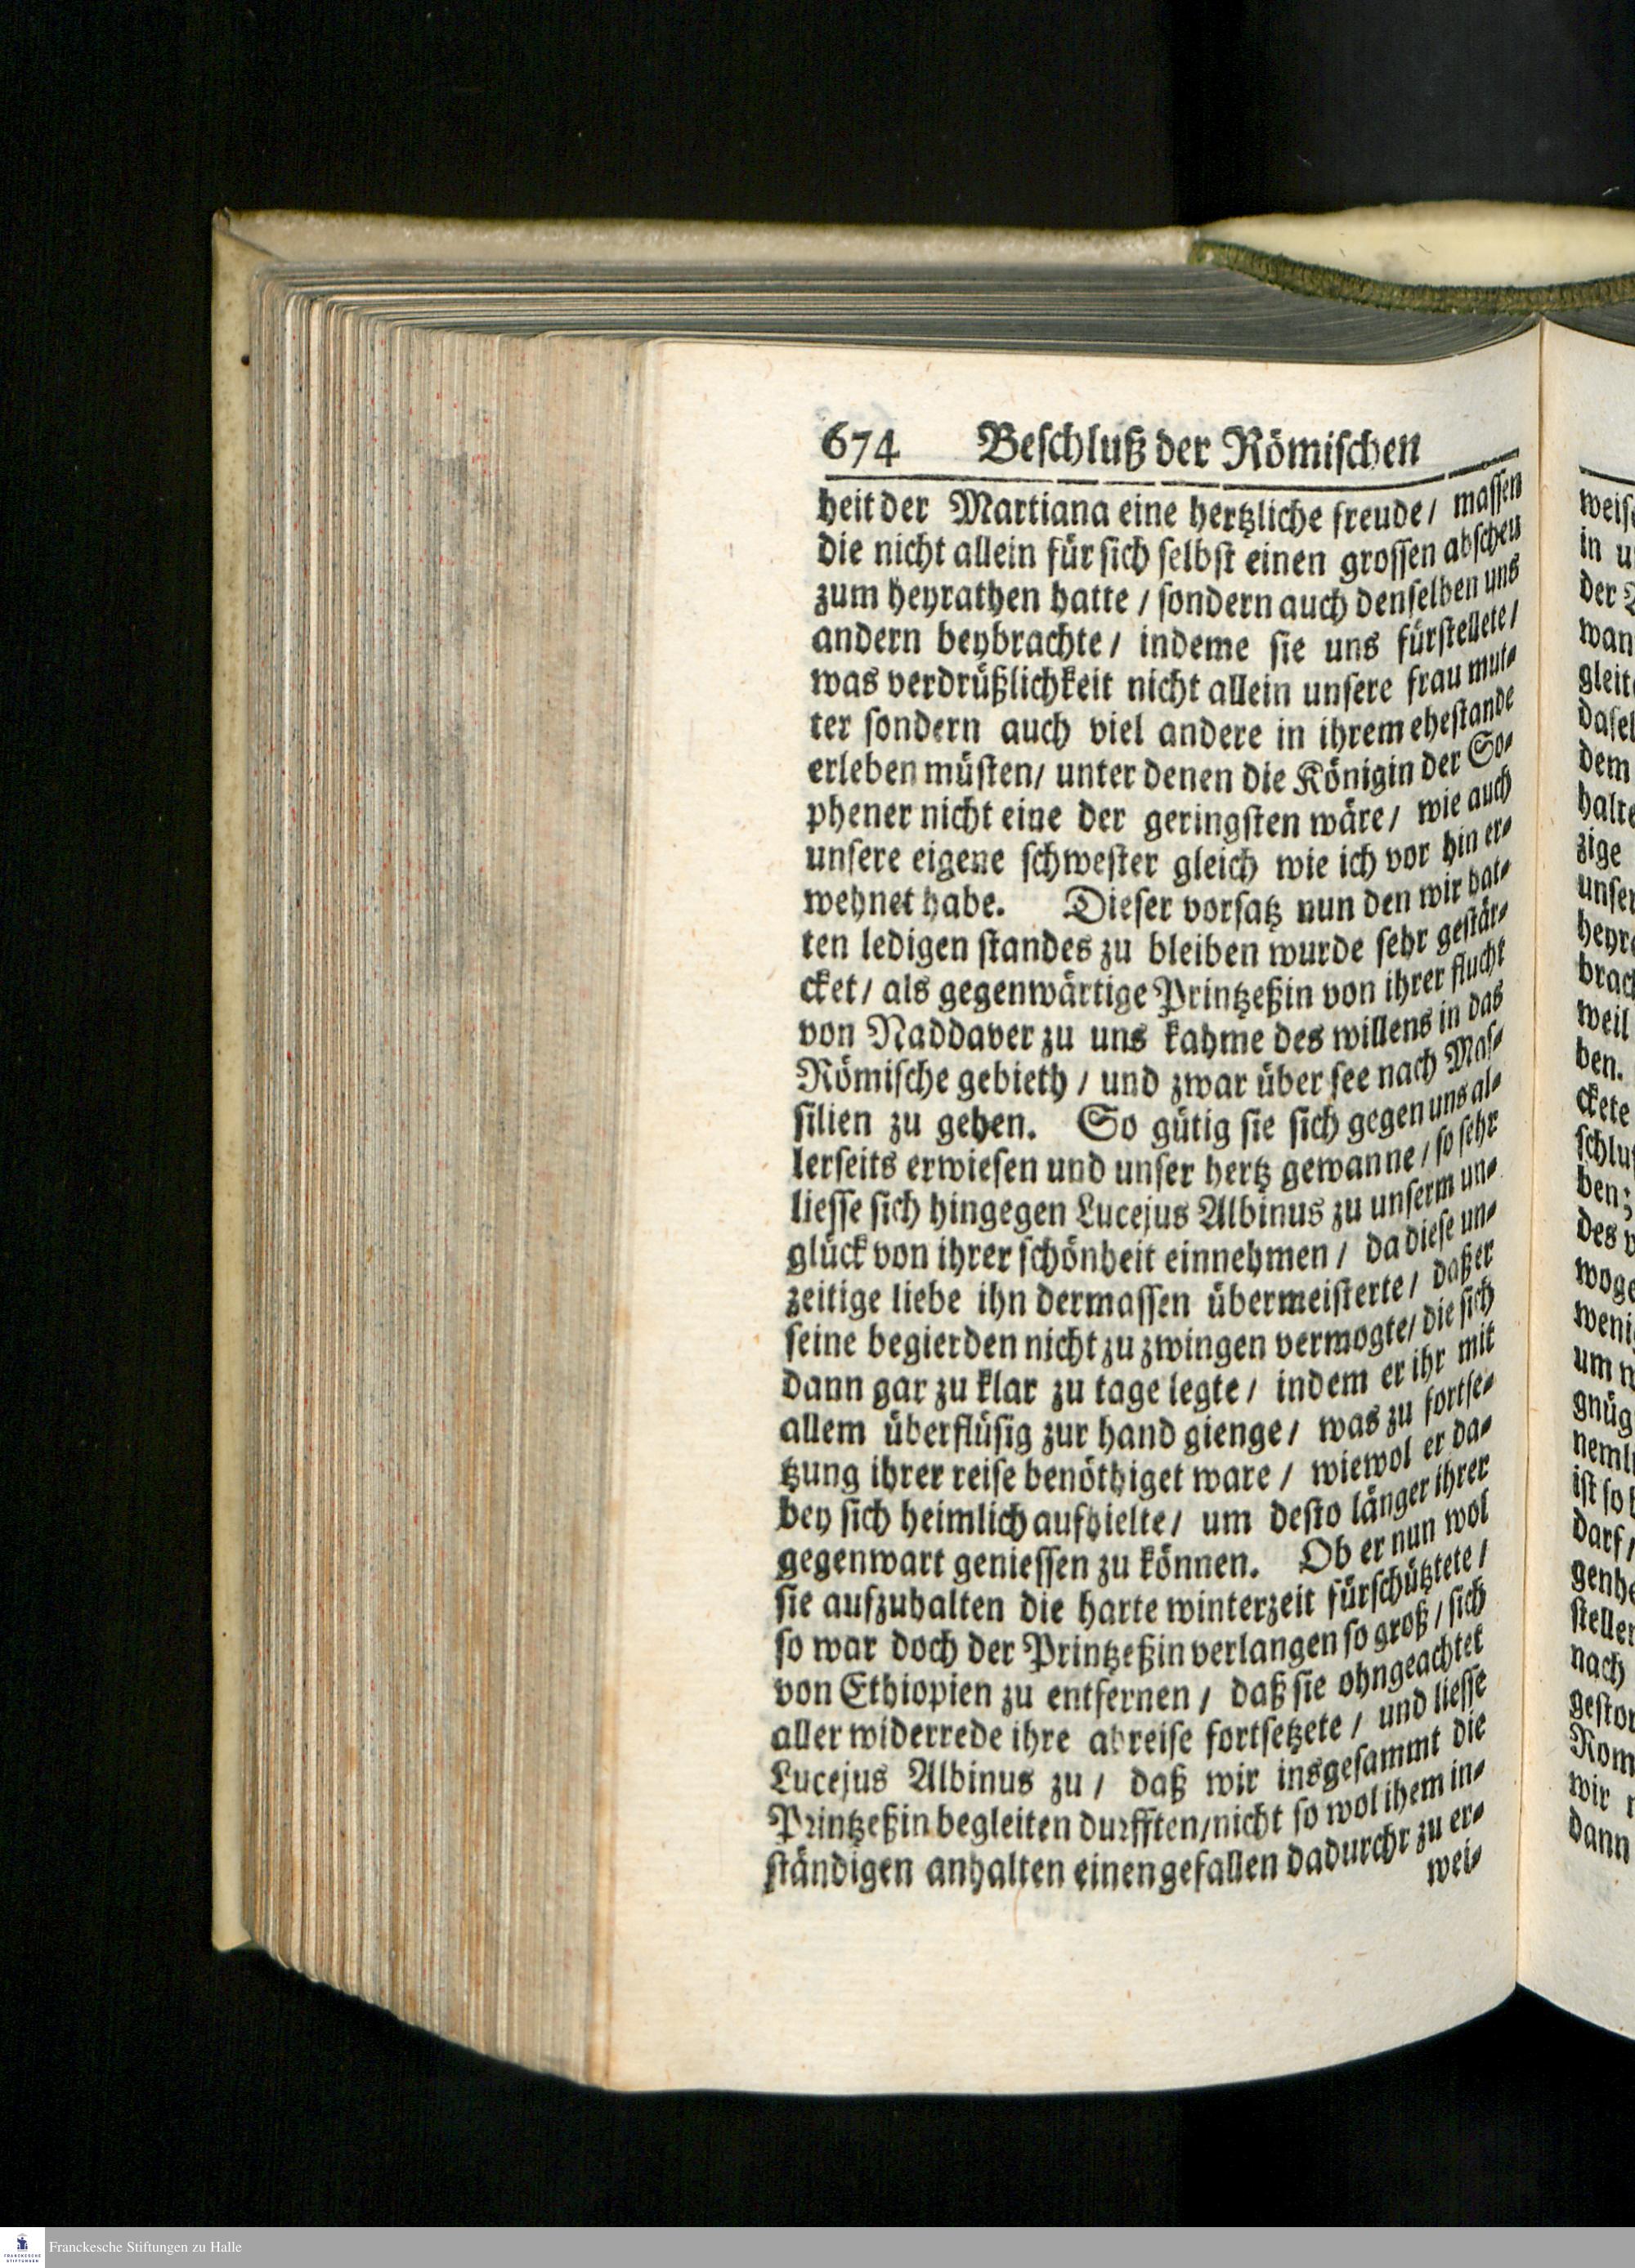 674 Beschluß der Römischen
heit der Martiana eine hertzliche freude / massen
die nicht allein für sich selbst einen grossen abscheu
zum heyrathen hatte / sondern auch denselben uns
andern beybrachte / indeme sie uns fürstellete /
was verdrüßlichkeit nicht allein unsere frau mut-
ter sondern auch viel andere in ihrem ehestande
erleben müsten / unter denen die Königin der So-
phener nicht eine der geringsten wäre / wie auch
unsere eigene schwester gleich wie ich vor hin er-
wehnet habe. Dieser vorsatz nun den wir hat-
ten ledigen standes zu bleiben wurde sehr gestär-
cket / als gegenwärtige Printzeßin von ihrer flucht
von Naddaver zu uns kahme des willens in das
Römische gebieth / und zwar über see nach Mas-
silien zu gehen. So gütig sie sich gegen uns al-
lerseits erwiesen und unser hertz gewanne / so sehr
liesse sich hingegen Lucejus Albinus zu unserm un-
glück von ihrer schönheit einnehmen / da diese un-
zeitige liebe ihn dermassen übermeisterte / daß er
seine begierden nicht zu zwingen vermogte / die sich
dann gar zu klar zu tage legte / indem er ihr mit
allem überflüsig zur hand gienge / was zu fortse-
tzung ihrer reise benöthiget ware / wiewol er da-
bey sich heimlich aufhielte / um desto länger ihrer
gegenwart geniessen zu können. Ob er nun wol
sie aufzuhalten die harte winterzeit fürschütztete /
so war doch der Printzeßin verlangen so groß / sich
von Ethiopien zu entfernen / daß sie ohngeachtet
aller widerrede ihre abreise fortsetzete / und liesse
Lucejus Albinus zu / daß wir insgesammt die
Printzeßin begleiten durfften / nicht so wol ihem in-
ständigen anhalten einen gefallen dadurchr zu er-
wei-
weis
in u
der
wan
gleit
dasel
dem
halte
zige
unser
heyr
brac
weil
ben.
ckete
schlu
ben;
des v
woge
weni
um w
gnüg
neml
ist so
darf /
genhe
stellen
nach
gestor
Rom
wir
dann
Franckesche Stiftungen zu Halle